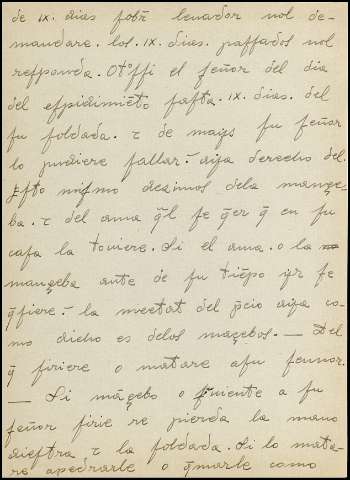 de ix. dias sobr̄ leuador nol de-
mandare. los. ix. dias. passados nol
responda. Otossi el señor del dia
del espidimiēto fasta. ix. dias. del
su soldada. τ de mays su señor
lo pudiere fallar. aya derecho del.
Esto mismo dezimos dela mançe-
ba. τ del ama q̄l se q̄er q̄ en su
casa la touiere. Si el ama. o la
mançeba ante de su tiēpo yr se
q̄siere. la meetat del p̄cio aya co-
mo dicho es delos māçebos. — Del
q̄ firiere o matare asu sennor.
— Si māçebo o siruiente a su
señor firie re pierda la mano
diestra τ la soldada. Si lo mata-
re apedrarle o q̄marle como